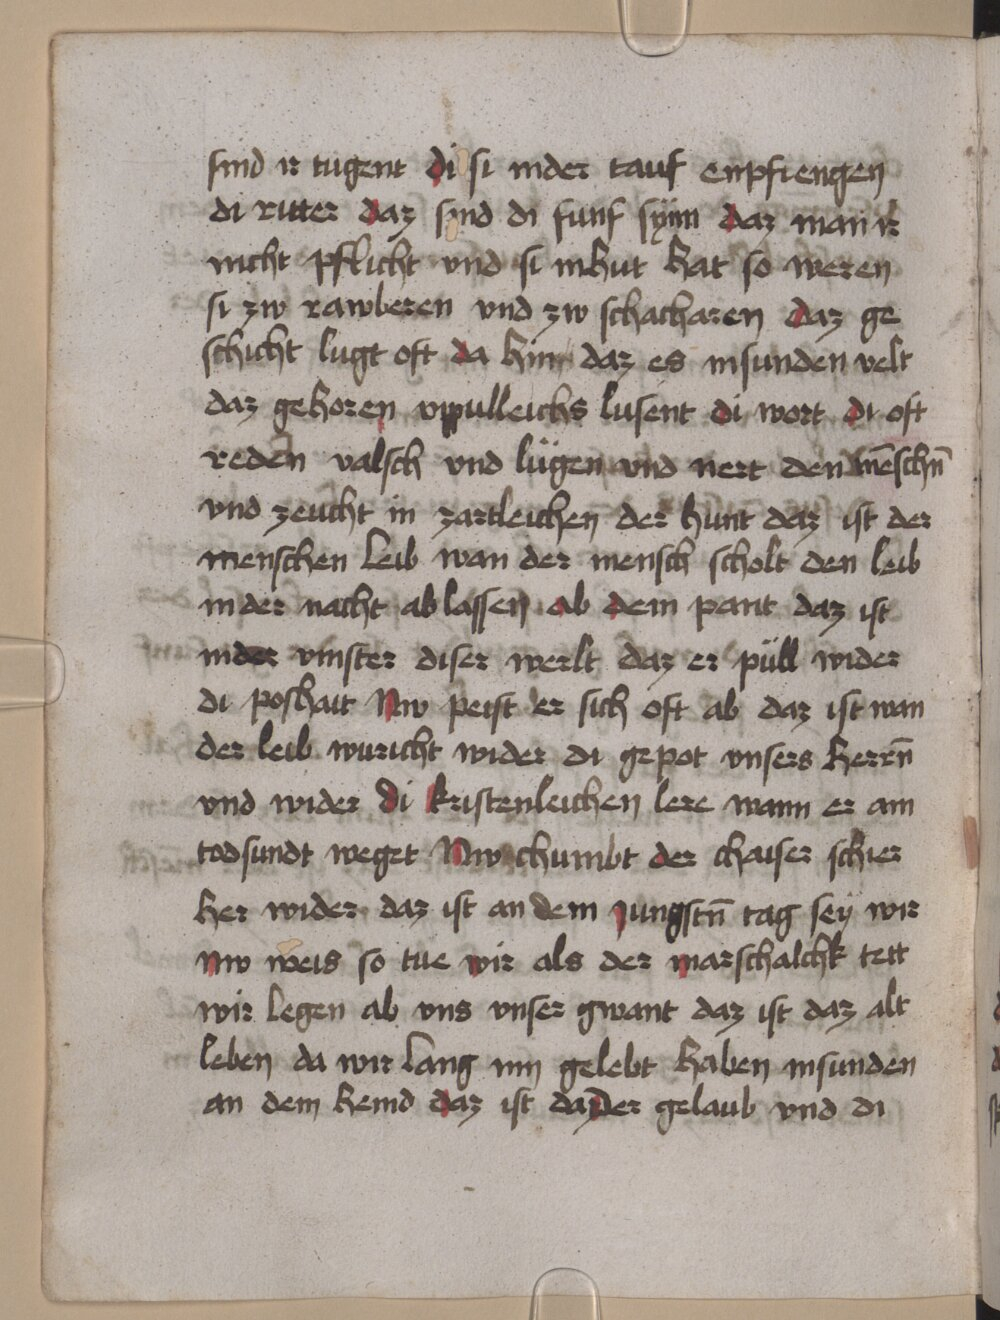 sind ir tugent di si inder tauf enpfiengen
di ritter daz sind di funf synn daz man ir
nicht pflicht vnd si inhut hat so weren
si zw rawberen vnd zw schacharen daz ge
schicht lugt oft da hin daz es insunden velt
daz gehoren vppulleichs lusent di wort di oft
reden valsch vnd lügen vnd nert den mēschn̄
vnd zeucht in zartleichen der hunt daz ist der
menschen leib wan der mensch scholt den leib
in der nacht ab lassen ab dem pant daz ist
inder vinster diser werlt daz er püll wider
di poshait Nw peist er sich oft ab daz ist wan
der leib wuricht wider di gepot vnsers herrn̄
vnd wider di kristenleichen lere wann er am
todsundt weget Nw chumbt der chaiser schier
her wider daz ist an dem jungstn̄ tag sey wir
nw weis so tue wir als der marschalchk tett
wir legen ab vns vnser gwant daz ist daz alt
leben da wir lang inn gelebt haben insunden
an dem hemd daz ist daz der gelaub vnd di